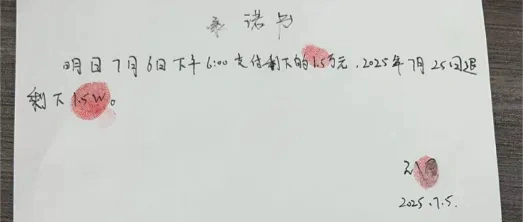 承诺书
明日7月6日下午6:00支付剩下的1.5万元.2025年7月25日退
剩下1.5W。
2025.7.5.